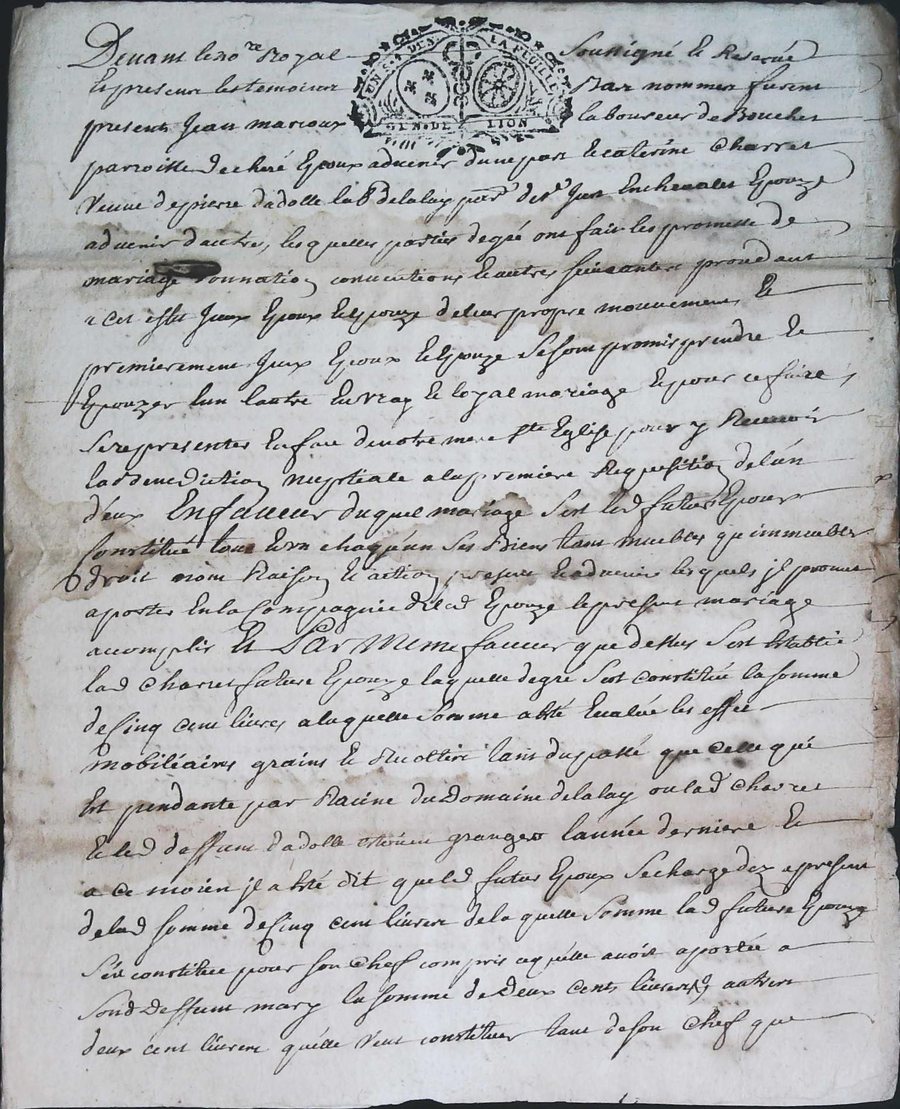 Devant le no.re Royal Soussigné et Reservé
Et presens les temoins Bas nommes furent
presents Jean marioux laboureur de Boucher
parroisse de cheré Epoux advenir dune part Et caterine Charret
Veuve de pierre dadolle la B delalay par.e de s.t Just Enchevalet Epouze
advenir dautre, les quelles parties de gré ont fait les promesse de
mariage donnation conventions Et autres suivantes procedant
a cet effet Iceux Epoux Et Epouze de leur propre mouvement Et
premierement Iceux Epoux Et Epouze se sont promis prendre Et
Epouzer l'un lautre En vray Et loyal mariage Et pour ce faire
se representer En face de notre mere s.te Eglise pour y Recevoir
la Benediction nuptiale a la premiere Requisition de l'un
d'eux En faveur duquel mariage s'est led futur Epoux
Constitué tous Et un chaqu'un ses Biens tant meubles qu'immeubles
droit nom Raison Et action, presens Et advenir les quels jl promet
aporter En la Compagnie de lad Epouze le present mariage
accomplis Et Par Meme faveur que dessus s'est Etablie
lad Charret future Epouze laquelle de gré s'est constituée la somme
de Cinq cent livres a la quelle somme a Eté Evalué les effes
mobiliaires grains Et Recoltes tant du passé que celle qui
Est pendante par Racine du Domaine de lalay ou lad Charret
Et led deffunt dadolle Etoient grangers l'année derniere Et
a ce moien jl a Eté dit que led futur Epoux se charge dez a present
de lad somme de Cinq cent livres de la quelle somme lad future Epouze
s'est constituée pour son Chef compris ce qu'elle avoit aportée a
sond Deffunt mary la somme de Deux cents livres Et autres
deux cent livres qu'elle veut constituer tant de son Chef que
GEN. DE LION